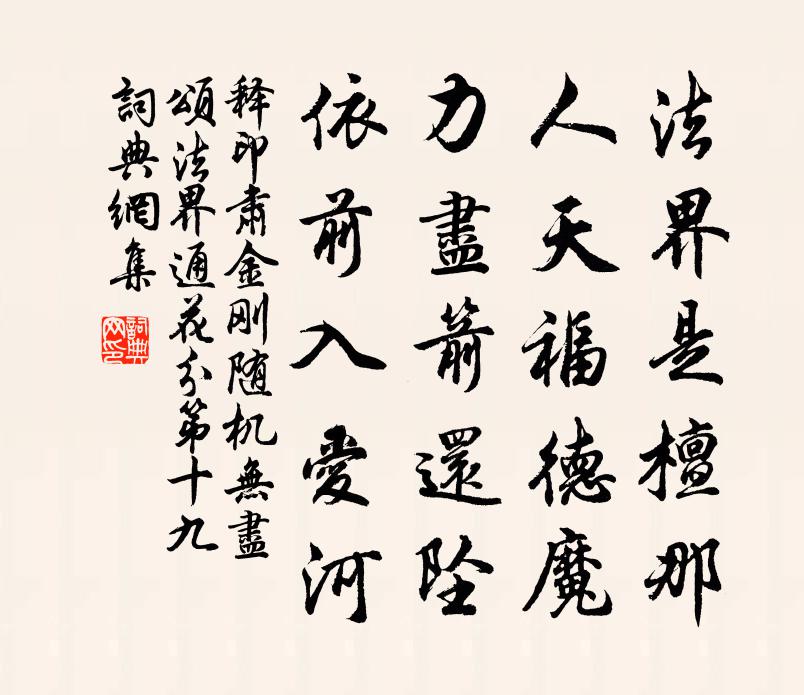 法界是檀那
人天福德魔
力盡箭還墜
依前入愛河
释印肅金刚随机無盡
頌法界通花分第十九
詞典網集
詞典
网印